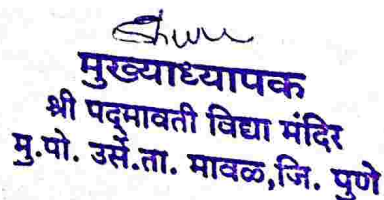 मुख्याध्यापक
श्री पद्मावती विद्या मंदिर
मु.पो. उर्से.ता. मावळ,जि. पुणे